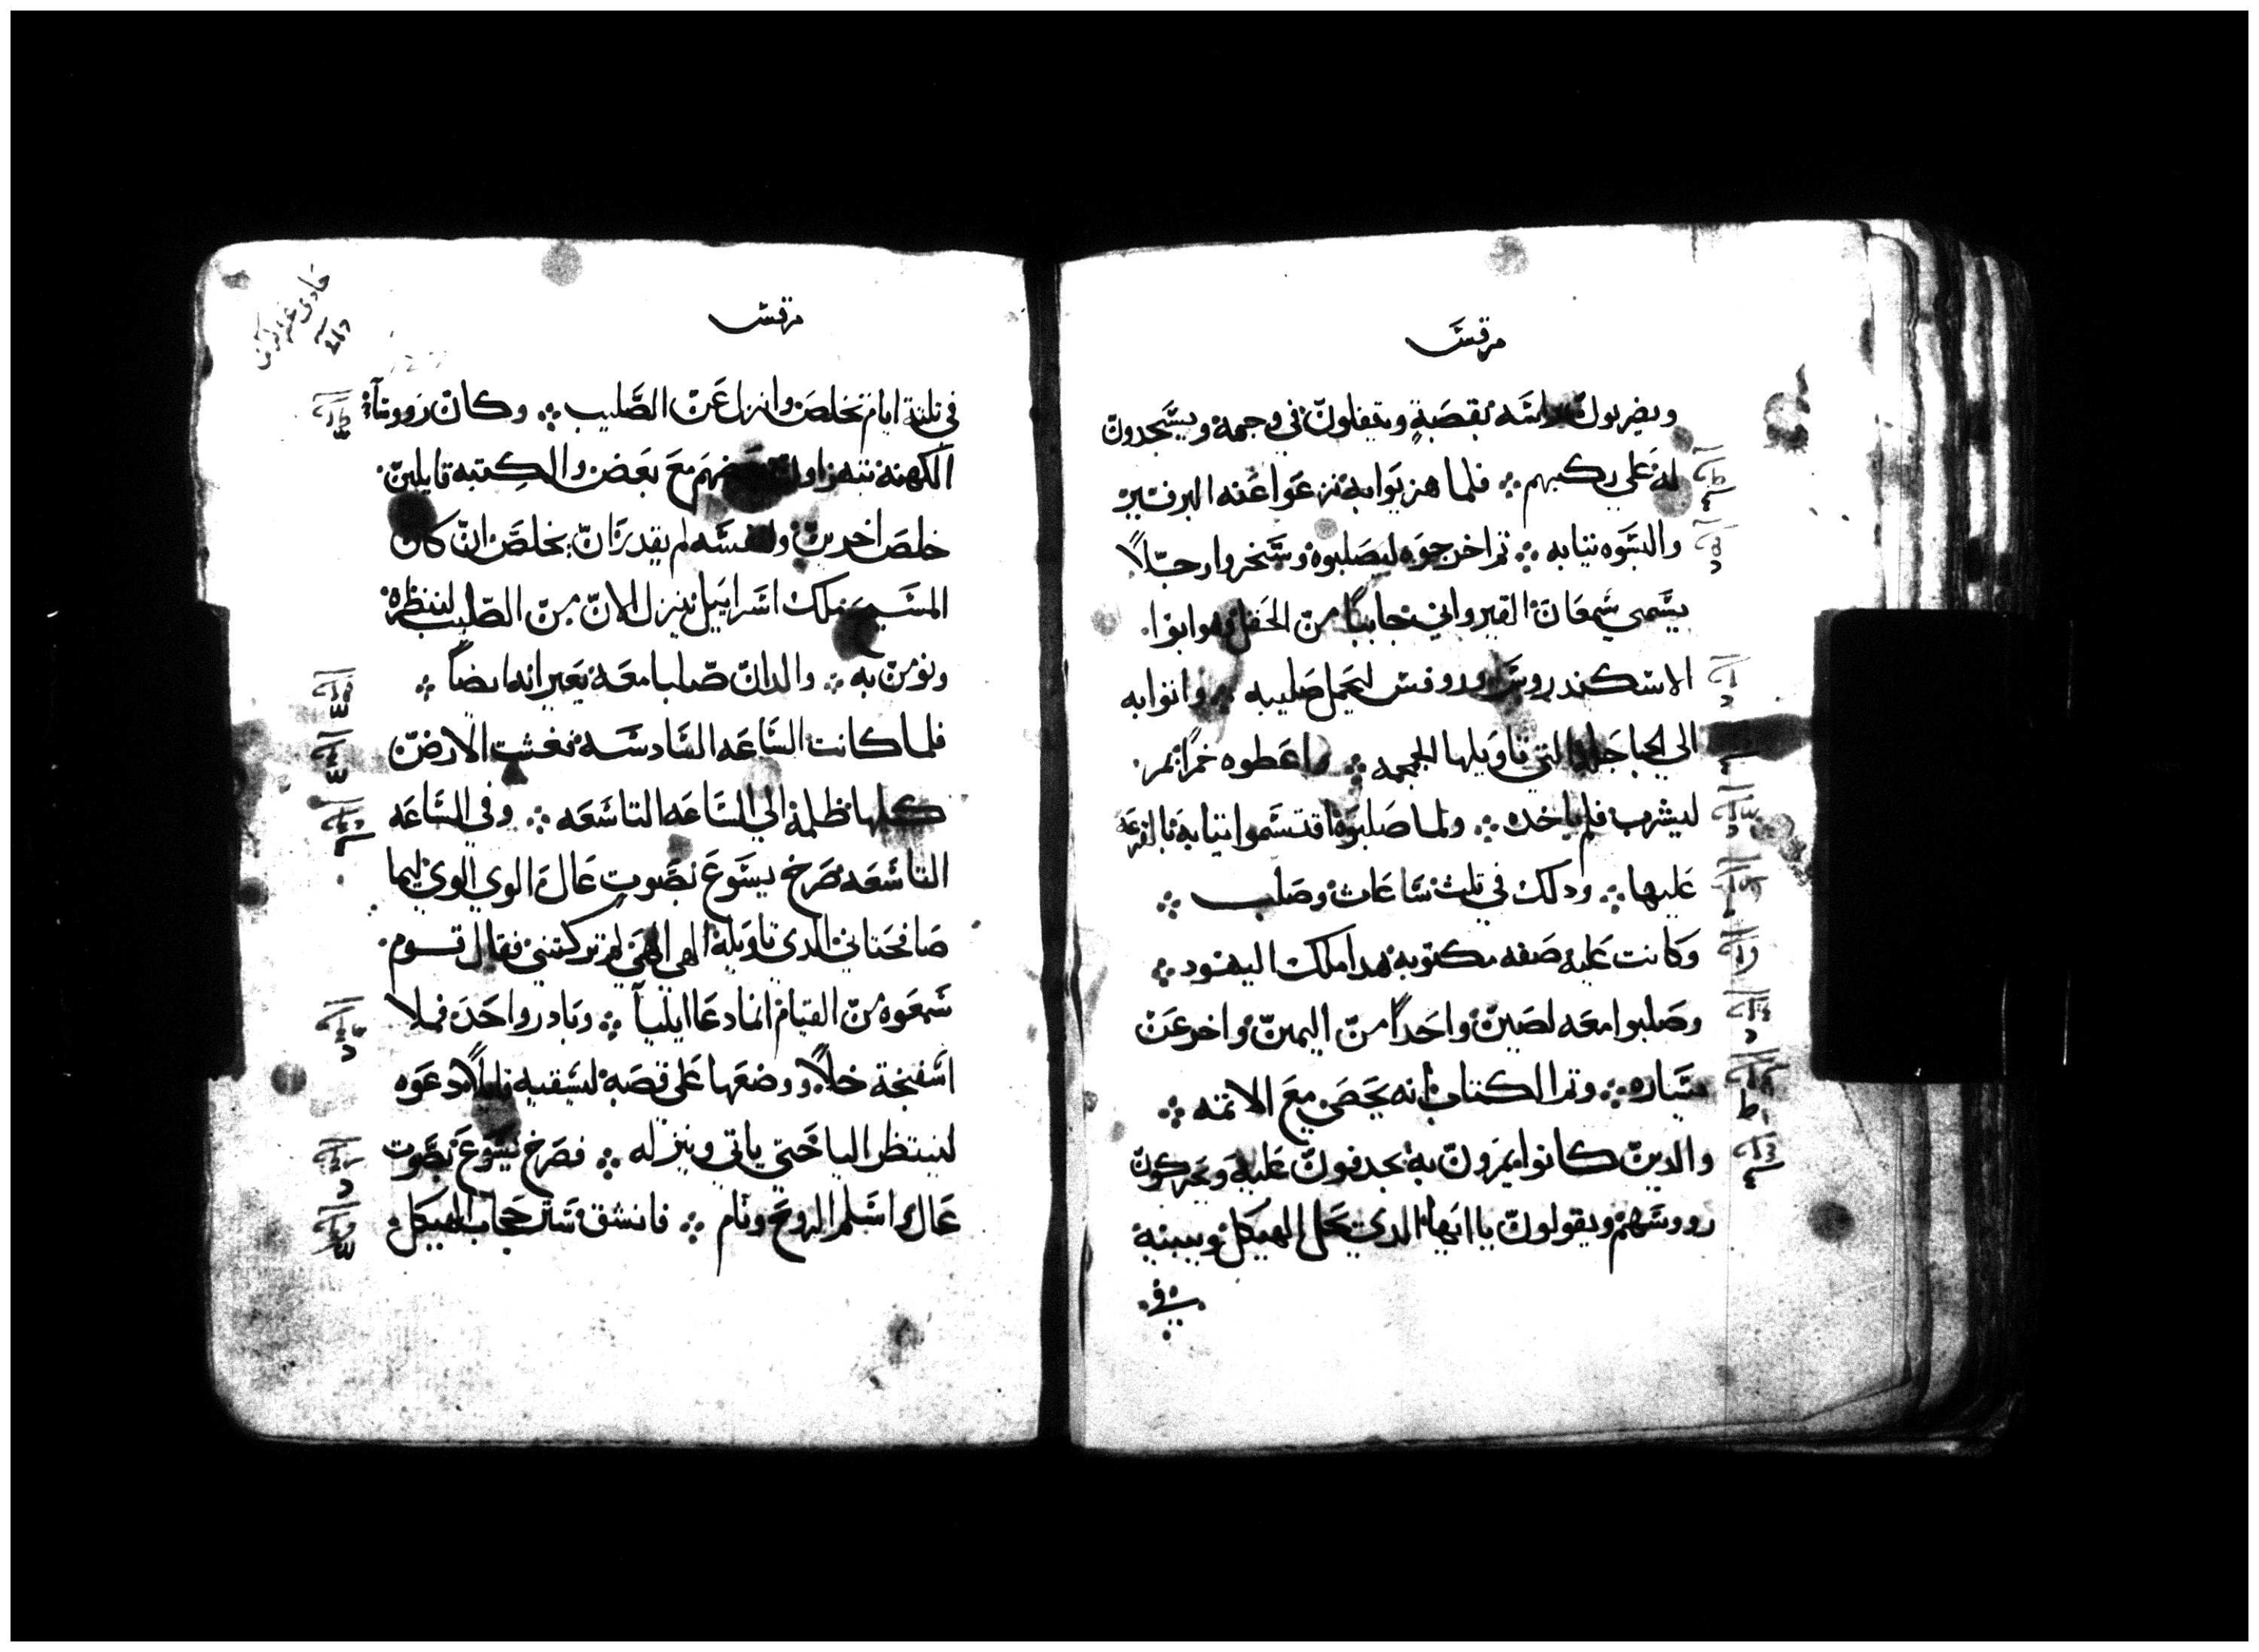 مرقس
ويضربون راسه بقصبة ويتفلون في وجهه ويسجدون
له علي ركبهم ۞ فلما هزيوا به نزعوا عنه البرفير
والبسوه تيابه ۞ تم اخرجوه ليصلبوه وسخروا رجلاً
يسمي سمعان القيرواني جاييًا من الحقل وهو ابوا
الاسكندروس وروفس ليحمل صليبه ۞ واتوا به
الي الجاجله التي تاويلها الجمجمه ۞ واعطوه خمرًا بمر
ليشرب فلم ياخده ۞ ولما صلبوه اقتسموا تيابه بالقرعه
عليها ۞ ودلك في تلت ساعات وصلب ۞
وكانت عليه صفه مكتوبه هدا ملك اليهود ۞
وصلبوا معه لصين واحدًا من اليمين واخر عن
يساره ۞ وتم الكتاب انه يحصي مع الاتمه ۞
والدين كانوا يمرون به يجدفون عليه ويحركون
رووسهم ويقولون يا ايها الدي يحل الهيكل ويبنيه
في
مرقس
في تلتة ايام تخلص وانزل عن الصليب ۞ وكان رووسآ
الكهنه يتهزاون بعضهم مع بعض والكتبه قايلين
خلص اخرين ونفسه لم يقدر ان يخلص ان كان
المسيح ملك اسراييل ينزل الان من الصليب لننظره
ونومن به ۞ والدان صلبا معه يعيرانه ايضًا ۞
فلما كانت الساعه السادسه تغشت الارض
كلها ظلمة الي الساعه التاسعه ۞ وفي الساعه
التاسعه صرخ يسوع بصوت عال الوي الوي ليما
صافحتاني الدي تاويله الهي الهي لم تركتني فقال قوم
سمعوه من القيام انما دعا ايليا ۞ وبادر واحد فملا
اسفنجة خلاً ووضعها علي قصبه ليسقيه قايلاً دعوه
لننتظر اليا حتي ياتي وينزله ۞ فصرخ يسوع بصوت
عال واسلم الروح ونام ۞ فانشق ستر حجاب الهيكل